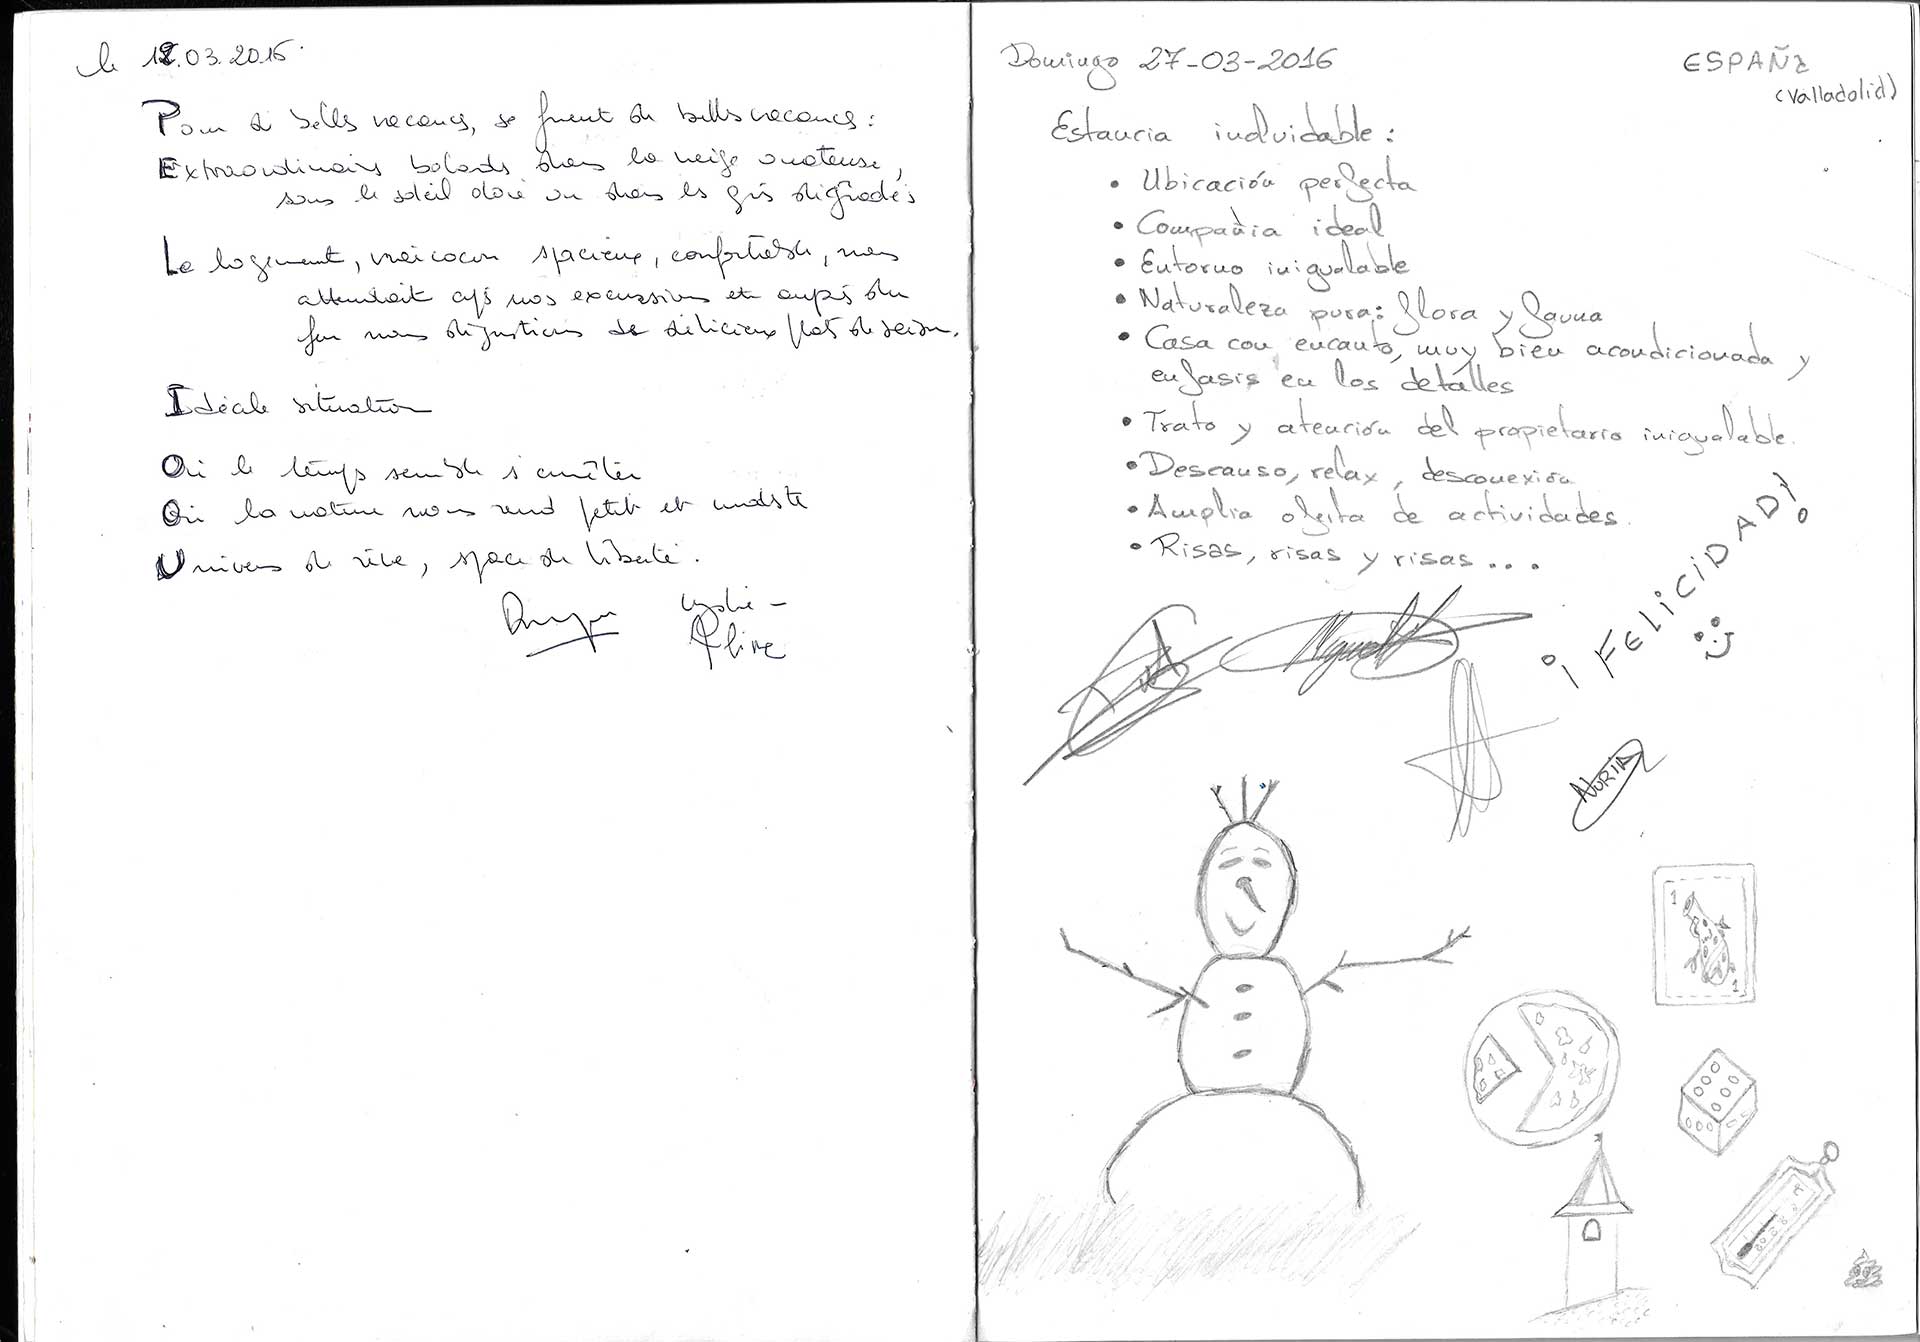 le 18.03.2016.
Pour de belles vacances, ce furent de belles vacances :
Extraordinaires balades dans la neige ouateuse,
sous le soleil doré ou dans les gris dégradés
Le logement, vrai cocon spacieux, confortable, nous
attendait après nos excursions et auprès du
feu nous dégustions de délicieux plats de
Idéale situation
Où le temps semble s'arrêter
Où la nature nous rend petit et modeste
Univers de rêve, espace de liberté.
Lydie -
Domingo 27-03-2016
ESPAÑA
(Valladolid)
Estancia inolvidable:
• Ubicación perfecta
• Compañia ideal
• Entorno inigualable
• Naturaleza pura: flora y fauna
• Casa con encanto, muy bien acondicionada y
enfasis en los detalles
• Trato y atención del propietario inigualable.
• Descanso, relax, desconexión
• Amplia oferta de actividades.
• Risas, risas y risas...
¡FELICIDAD!
NURIA
1
1